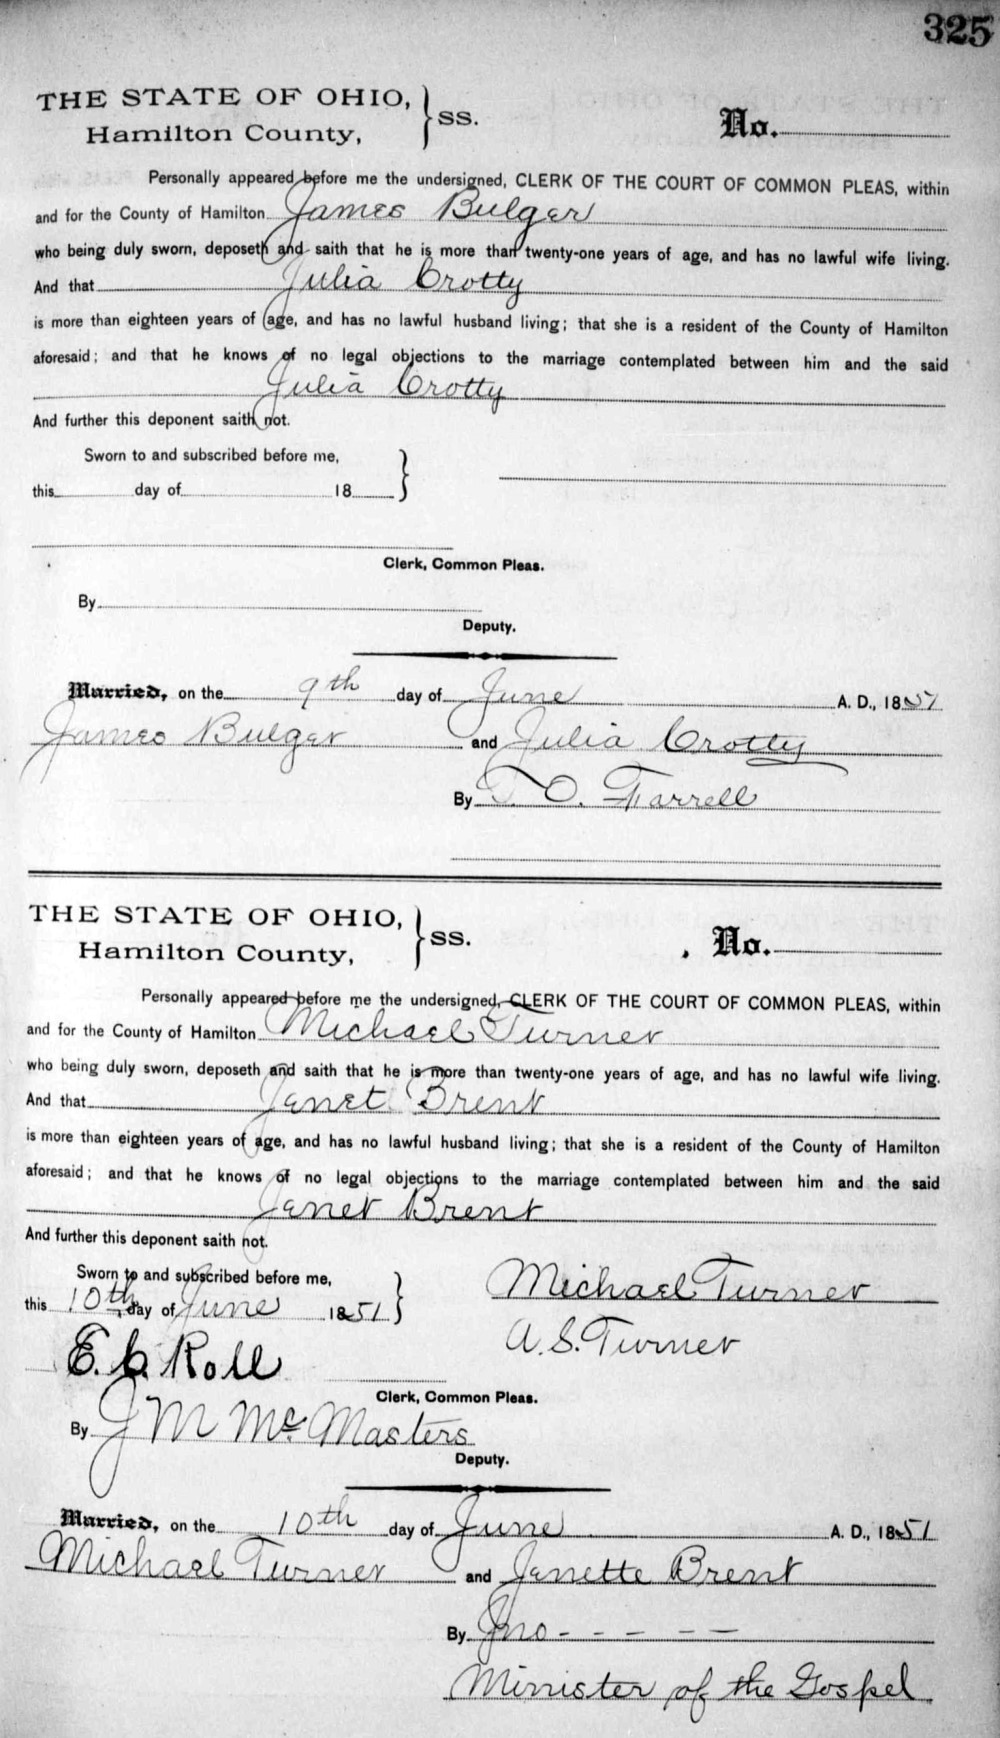 325
THE STATE OF OHIO, } SS.
Hamilton County, No.
Personally appeared before me the undersigned, CLERK OF THE COURT OF COMMON PLEAS, within
and for the County of Hamilton James Bulger
who being duly sworn, deposeth and saith that he is more than twenty-one years of age, and has no lawful wife living.
And that Julia Crotty
is more than eighteen years of age, and has no lawful husband living; that she is a resident of the County of Hamilton
aforesaid; and that he knows of no legal objections to the marriage contemplated between him and the said
Julia Crotty
And further this deponent saith not.
Sworn to and subscribed before me, }
this day of 18
Clerk, Common Pleas.
By
Deputy.
Married, on the 9th day of June A. D., 1851
James Bulger and Julia Crotty
By T. O. Farrell
THE STATE OF OHIO, } SS.
Hamilton County, No.
Personally appeared before me the undersigned, CLERK OF THE COURT OF COMMON PLEAS, within
and for the County of Hamilton Michael Turner
who being duly sworn, deposeth and saith that he is more than twenty-one years of age, and has no lawful wife living.
And that Janet Brent
is more than eighteen years of age, and has no lawful husband living; that she is a resident of the County of Hamilton
aforesaid; and that he knows of no legal objections to the marriage contemplated between him and the said
Janet Brent
And further this deponent saith not.
Sworn to and subscribed before me, } Michael Turner
this 10th day of June 1851
A. S. Turner
E. C. Roll
Clerk, Common Pleas.
By J M McMasters
Deputy.
Married, on the 10th day of June A. D., 1851
Michael Turner and Janette Brent
By Jno - - - - -
Minister of the Gospel